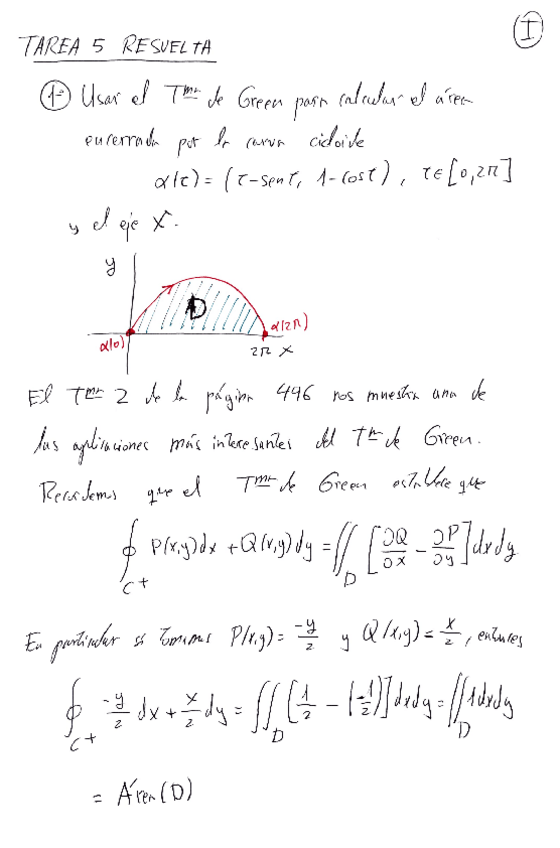 I
TAREA 5 RESUELTA
1º Usar el Tma de Green para calcular el área
encerrada por la curva cicloide
α(t) = (t-sent, 1-cost), t∈[0,2π]
y el eje X.
y
D
α(0)
α(2π)
2π x
El Tma 2 de la página 496 nos muestra una de
las aplicaciones más interesantes del Tma de Green.
Recordemos que el Tma de Green establece que
∮C+ P(x,y)dx + Q(x,y)dy = ∬D [∂Q/∂x - ∂P/∂y] dxdy
En particular si tomamos P(x,y) = -y/2 y Q(x,y) = x/2, entonces
∮C+ -y/2 dx + x/2 dy = ∬D [1/2 - (-1/2)] dxdy = ∬D 1dxdy
= Área(D)